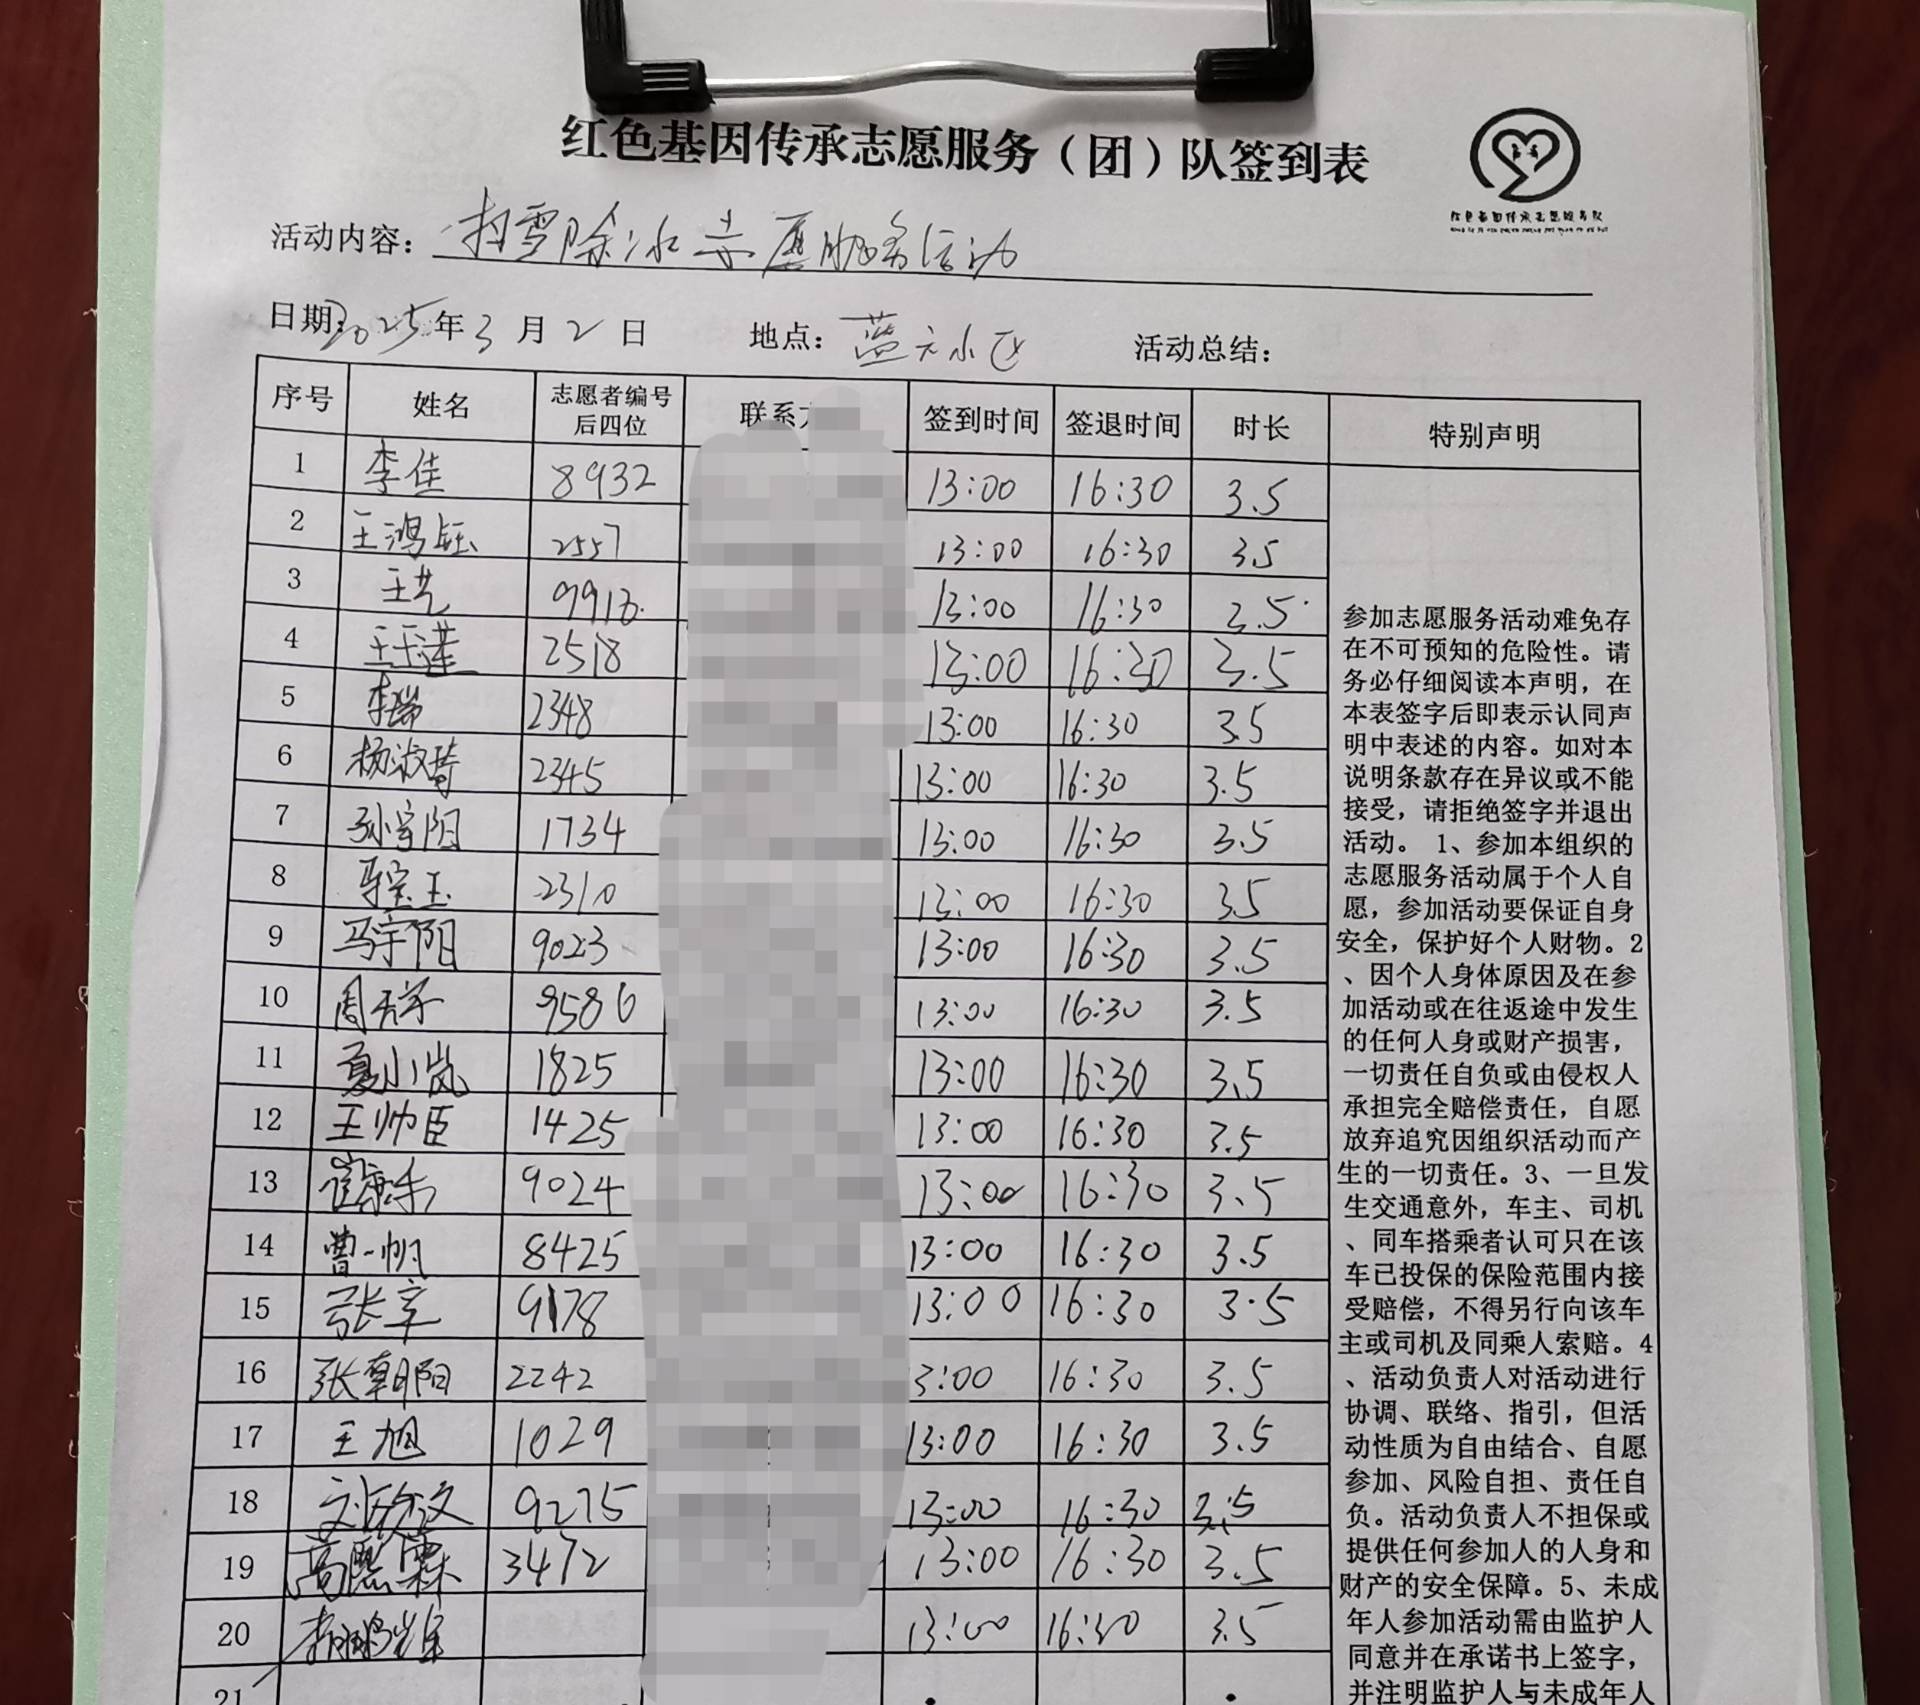 红色基因传承志愿服务（团）队签到表
红色基因传承志愿服务队
活动内容：扫雪除冰志愿服务活动
日期：2025年3月2日 地点：蓝天小区 活动总结：
序号 姓名 志愿者编号后四位 联系方 签到时间 签退时间 时长 特别声明
1 李佳 8932 13:00 16:30 3.5
2 王鸿钰 2557 13:00 16:30 3.5
3 王艺 13:00 16:30 3.5
4 2518 13:00 16:30 3.5
5 李瑞 2348 13:00 16:30 3.5
6 杨淑 2345 13:00 16:30 3.5
7 孙宇阳 1734 13:00 16:30 3.5
8 2310 13:00 16:30 3.5
9 马宇阳 9023 13:00 16:30 3.5
10 周 9586 13:00 16:30 3.5
11 夏小岚 1825 13:00 16:30 3.5
12 王帅臣 1425 13:00 16:30 3.5
13 崔康乐 9024 13:00 16:30 3.5
14 曹一帆 8425 13:00 16:30 3.5
15 张宇 9178 13:00 16:30 3.5
16 张朝阳 2242 3:00 16:30 3.5
17 王旭 1029 13:00 16:30 3.5
18 9275 13:00 16:30 3.5
19 高熙霖 3472 13:00 16:30 3.5
20 李鹏 13:00 16:30 3.5
21
参加志愿服务活动难免存
在不可预知的危险性。请
务必仔细阅读本声明，在
本表签字后即表示认同声
明中表述的内容。如对本
说明条款存在异议或不能
接受，请拒绝签字并退出
活动。 1、参加本组织的
志愿服务活动属于个人自
愿，参加活动要保证自身
安全，保护好个人财物。2
、因个人身体原因及在参
加活动或在往返途中发生
的任何人身或财产损害，
一切责任自负或由侵权人
承担完全赔偿责任，自愿
放弃追究因组织活动而产
生的一切责任。3、一旦发
生交通意外，车主、司机
、同车搭乘者认可只在该
车已投保的保险范围内接
受赔偿，不得另行向该车
主或司机及同乘人索赔。4
、活动负责人对活动进行
协调、联络、指引，但活
动性质为自由结合、自愿
参加、风险自担、责任自
负。活动负责人不担保或
提供任何参加人的人身和
财产的安全保障。5、未成
年人参加活动需由监护人
同意并在承诺书上签字，
并注明监护人与未成年人